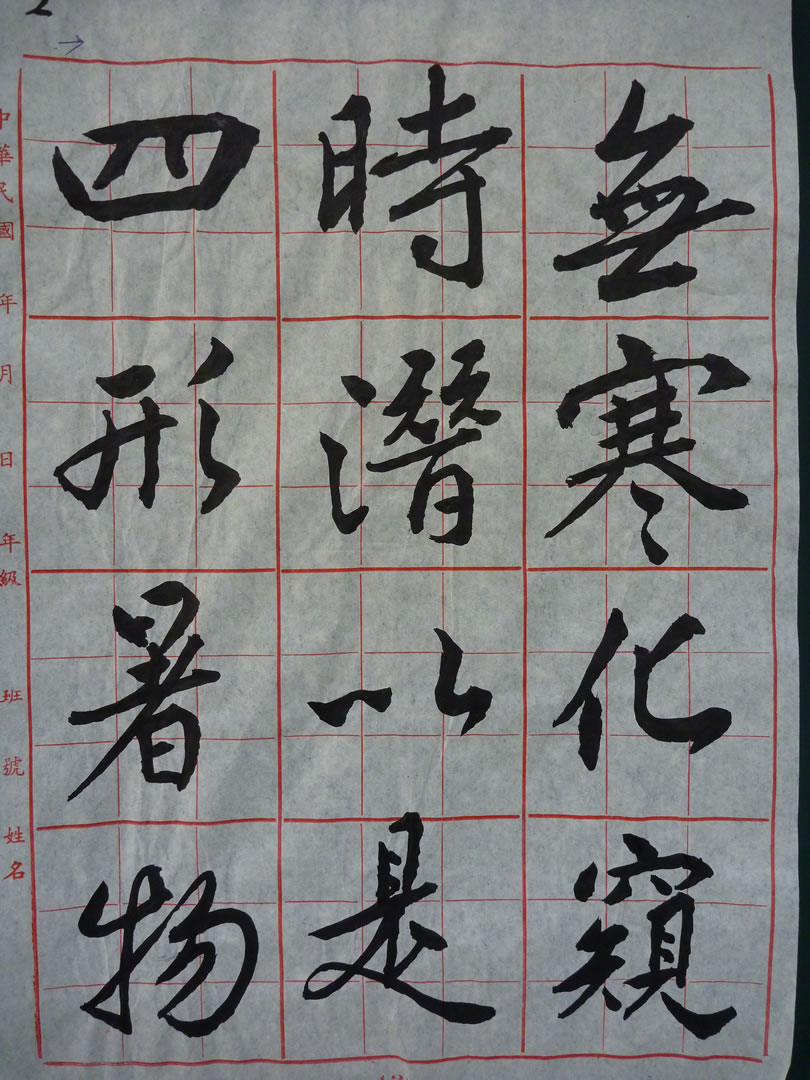 →
四時無
形潛寒
暑以化
物是窺
中華民國 年 月 日 年級 班 號 姓名